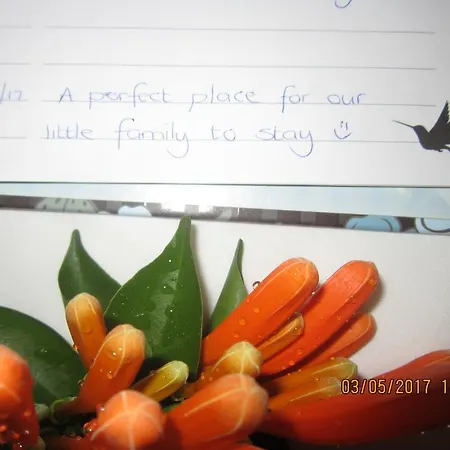 /17 A perfect place for our
little family to stay
03/05/2017 1